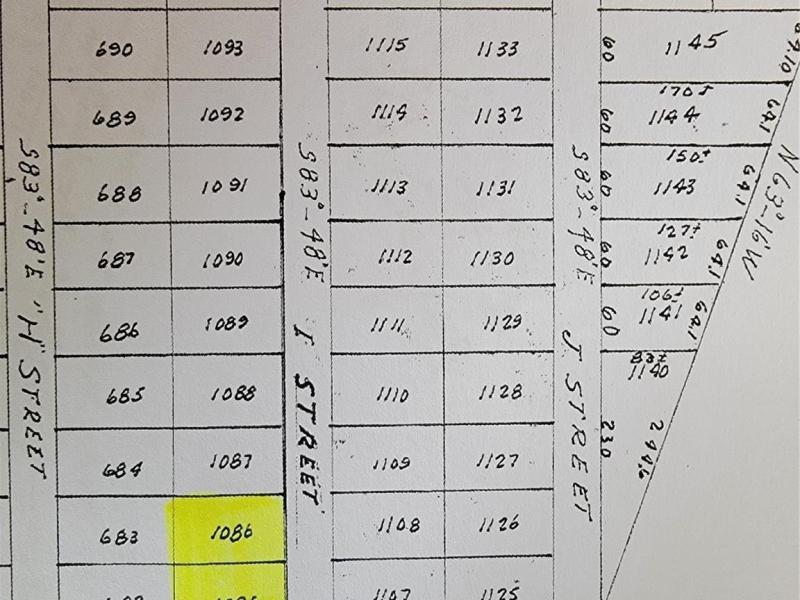 690 1093 1115 1133 60 1145 64.10
170±
689 1092 1114 1132 60 1144 64.1
150±
688 1091 1113 1131 60 1143 64.1
127±
687 1090 1112 1130 60 1142 64.1
106±
686 1089 1111 1129 60 1141 64.1
83±
1140
685 1088 1110 1128
684 1087 1109 1127 230 244.6
683 1086 1108 1126
1107 1125
S83°-48'E "H" STREET
S83°-48'E I STREET
S83°-48'E J STREET
N63°-16'W